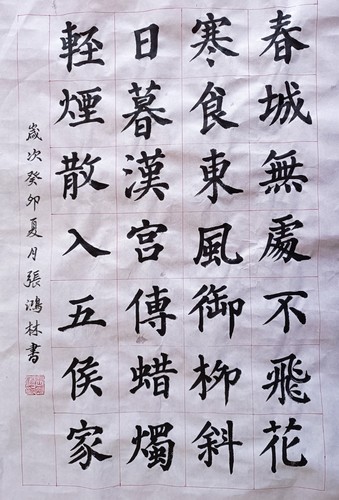 春城無處不飛花
寒食東風御柳斜
日暮漢宮傳蜡燭
輕煙散入五侯家
歲次癸卯夏月張鴻林書